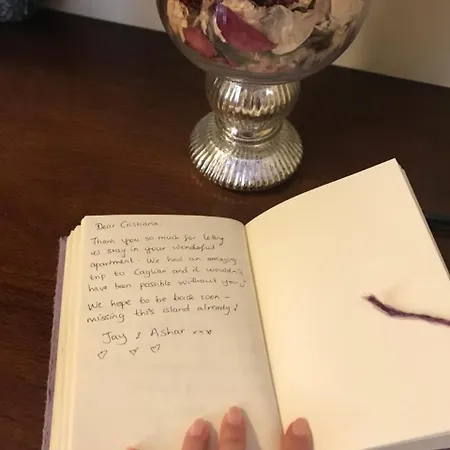 Dear Cristiana,
Thank you so much for letting
us stay in your wonderful
apartment. We had an amazing
trip to Cagliari and it wouldn't
have been possible without you!
We hope to be back soon -
missing this island already!
Jay & Ashar xxx